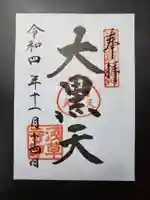 奉拝
大黒天
浅草
令和四年十二月十四日